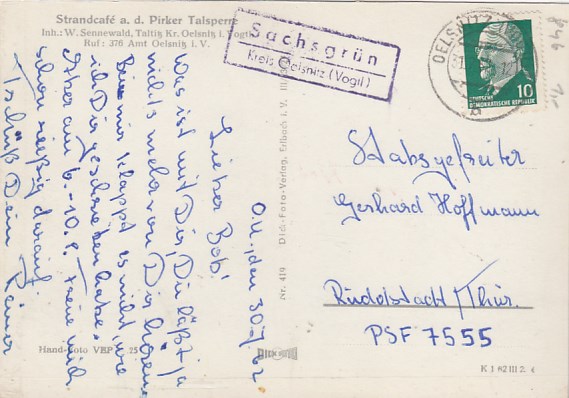 Strandcafé a. d. Pirker Talsperre
Inh.: W. Sennewald, Taltitz Kr. Oelsnitz i. Vogtl.
Ruf: 376 Amt Oelsnitz i. V.
Sachsgrün
Kreis Oelsnitz (Vogtl)
OELSNITZ
10
DEUTSCHE
DEMOKRATISCHE REPUBLIK
846
O.U., den 30.7.62
Lieber Bob!
Was ist mit Dir, Du läßt ja
nichts mehr von Dir hören.
Bei mir klappt es nicht, wie
ich Dir geschrieben habe.
Aber am 6.-10.8. Freue mich
schon riesig darauf.
Tschüß Dein Rainer
Stabsgefreiter
Gerhard Hoffmann
Rudolstadt/Thür.
PSF 7555
Nr. 419 Dick-Foto-Verlag, Erlbach i. V. III
Hand-Foto VEP 25
K 1 62 III 2. 4